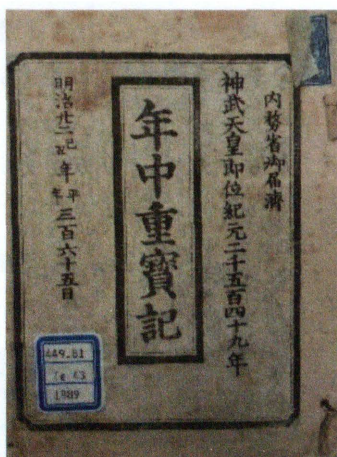 内務省御届濟
神武天皇即位紀元二千五百四十九年
年中重寳記
明治廿二年己丑平年三百六十五日
449.81
1889